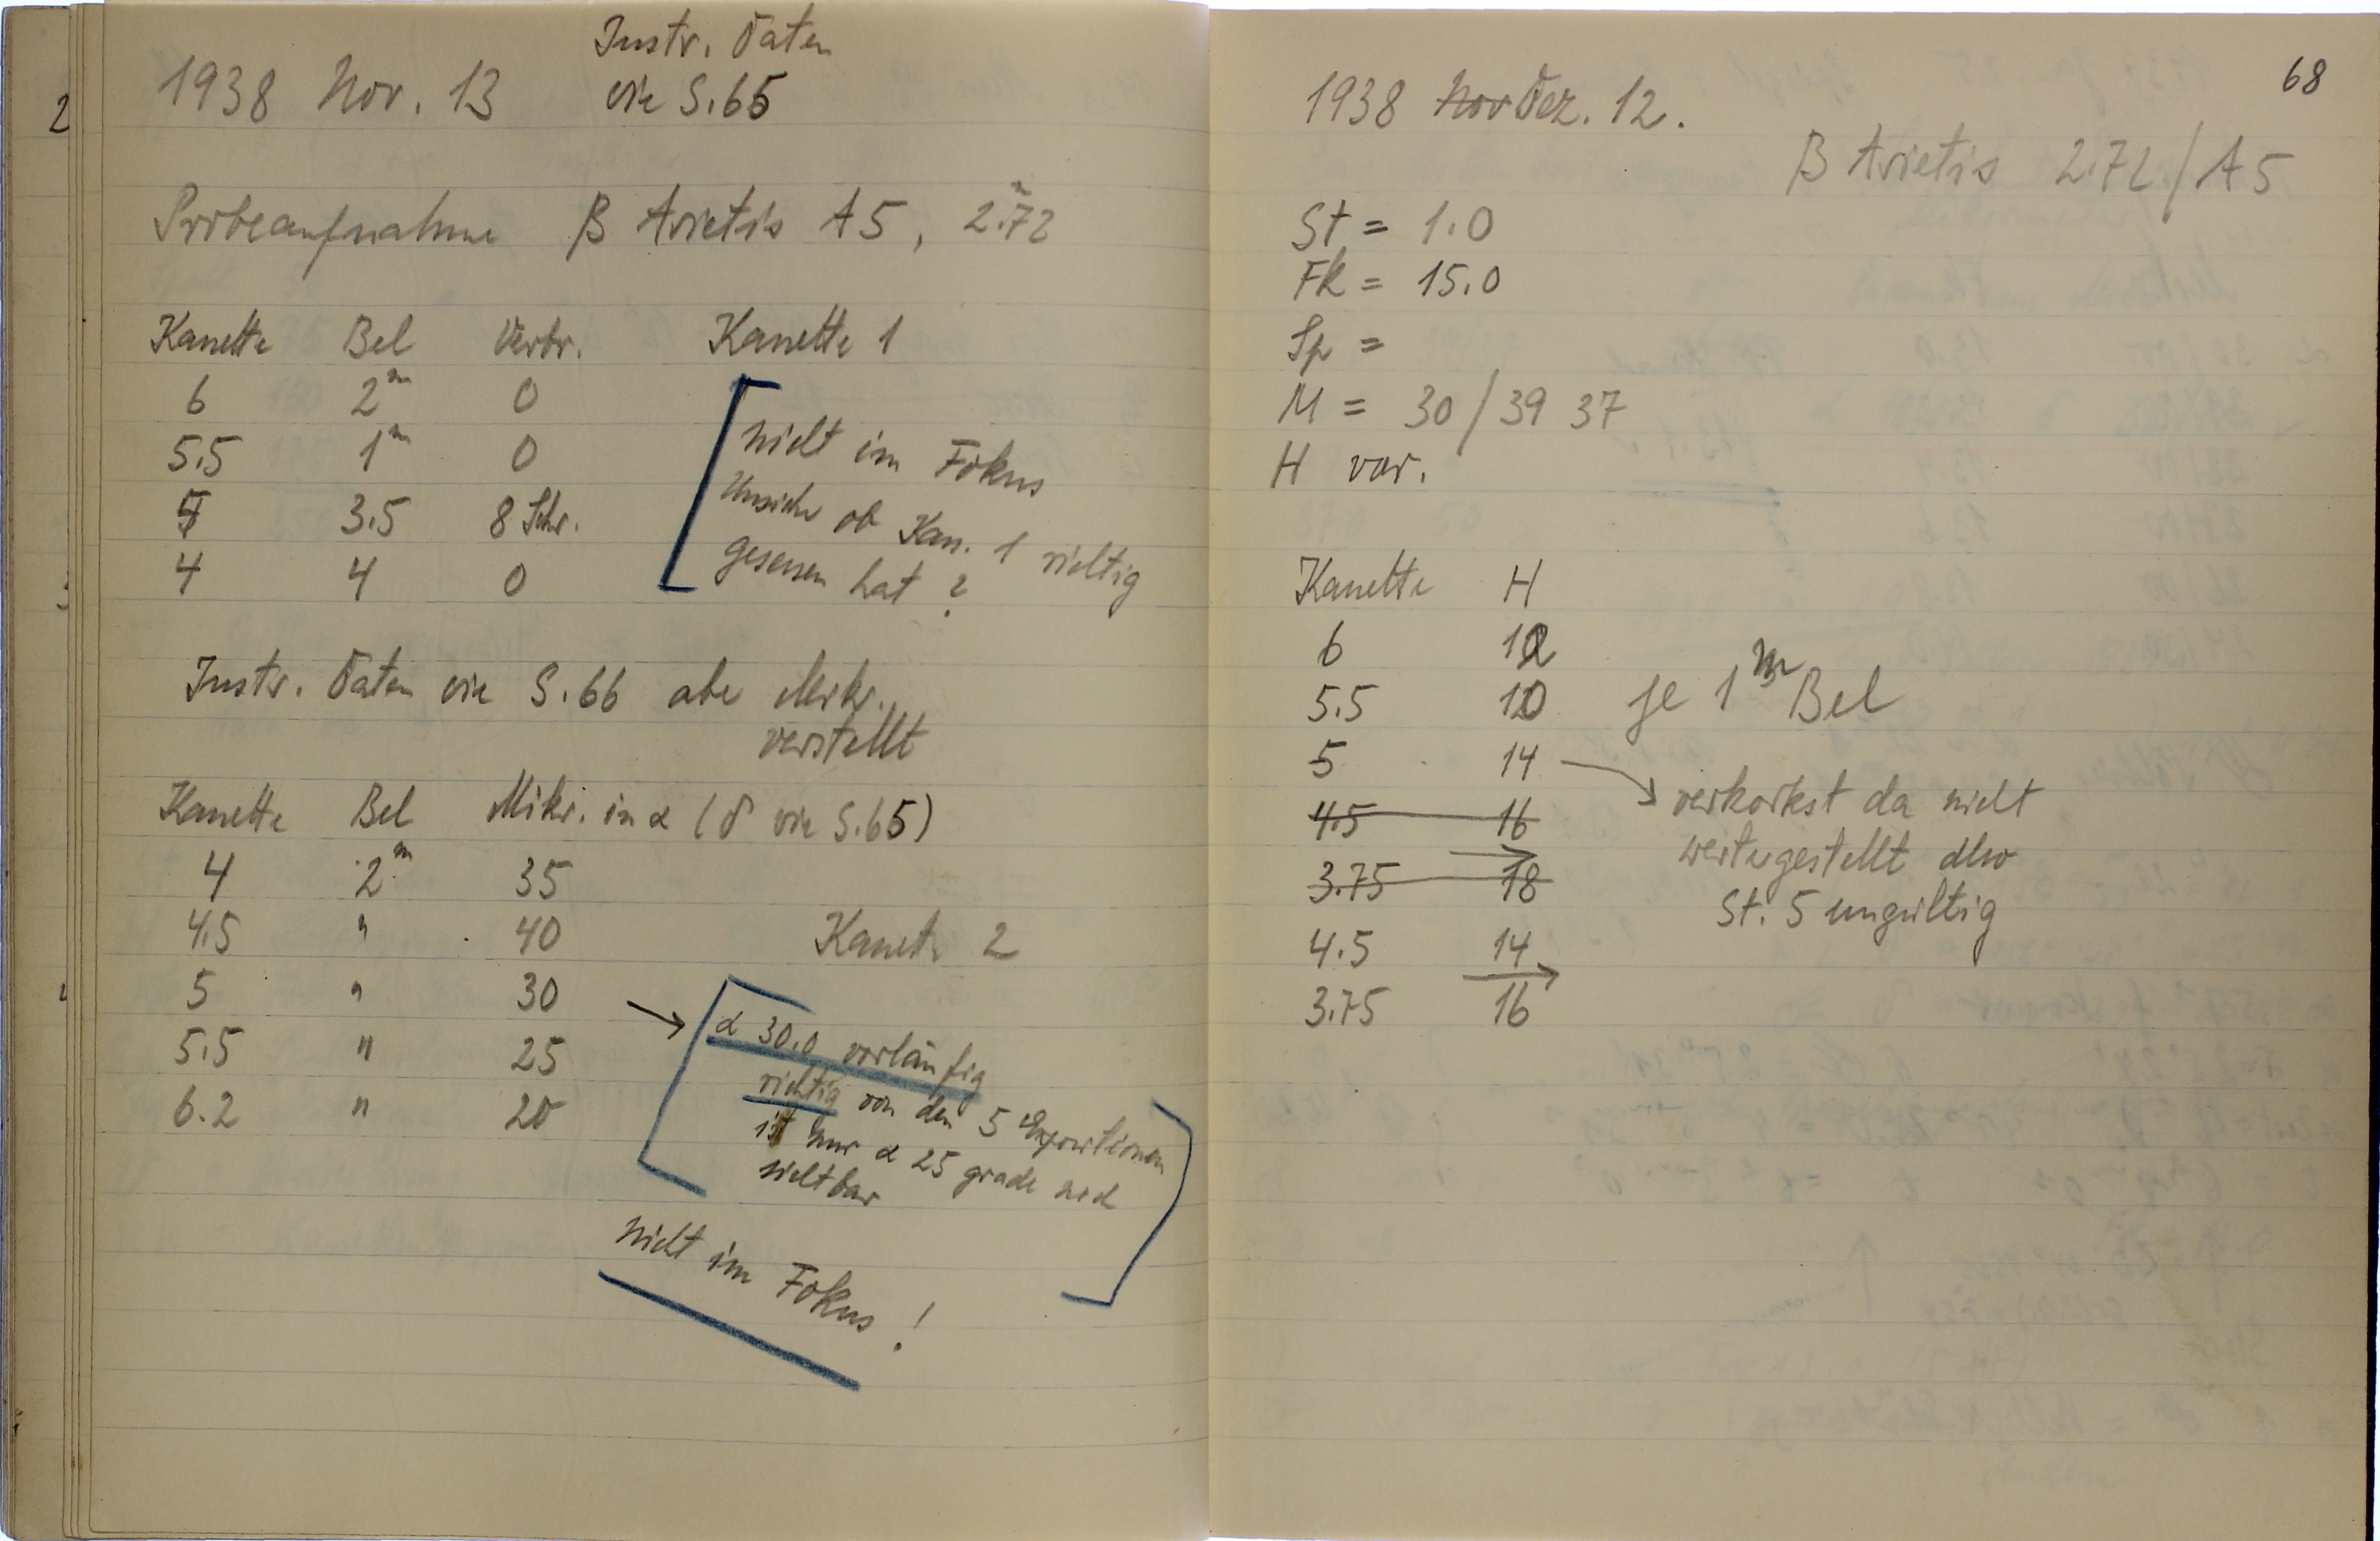 Instr. Daten
1938 Nov. 13 wie S. 65
Probeaufnahme β Arietis A5, 2.72ᵐ
Kasette Bel Verbr. Kasette 1
6 2ᵐ 0
5.5 1ᵐ 0
5 3.5 8 Schr.
4 4 0
nicht im Fokus
Unsicher ob Kas. 1 richtig
gesessen hat ?
Instr. Daten wie S. 66 aber Mikr.
verstellt
Kasette Bel Mikr. in α (δ wie S. 65)
4 2ᵐ 35
4.5 " 40
Kasette 2
5 " 30
5.5 " 25
6.2 " 20
→ α 30.0 vorläufig
richtig von den 5 Expositionen
ist nur α 25 grade noch
sichtbar
nicht im Fokus !
68
1938 Nov Dez. 12.
β Arietis 2.72 / A5
St = 1.0
Fk = 15.0
Sp =
M = 30 / 39 37
H var.
Kasette H
6 12
5.5 10 je 1ᵐ Bel
5 14 → verkorkst da nicht
4.5 16 weitergestellt also
3.75 18 St. 5 ungültig
4.5 14
3.75 16